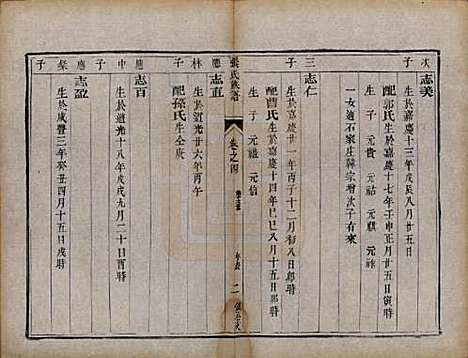 次子
志美
生於嘉慶十三年戊辰八月廿五日
配郭氏生嘉慶十七年壬申正月廿五日寅時
生子元貴 元祜 元祺 元祚
一女適石家庄韓宗增次子有來
三子
志仁
生於嘉慶廿一年丙子十二月初八日卯時
配曹氏生於嘉慶十四年己巳八月十五日卯時
生子元禧 元信
張氏族譜
卷之四
年表
二
應林子
志直
生於道光廿六年丙午
配孫氏生仝庚
應中子
志百
生於道光十八年戊戌九月二十日酉時
應榮子
志盈
生於咸豐三年癸丑四月十五日戌時